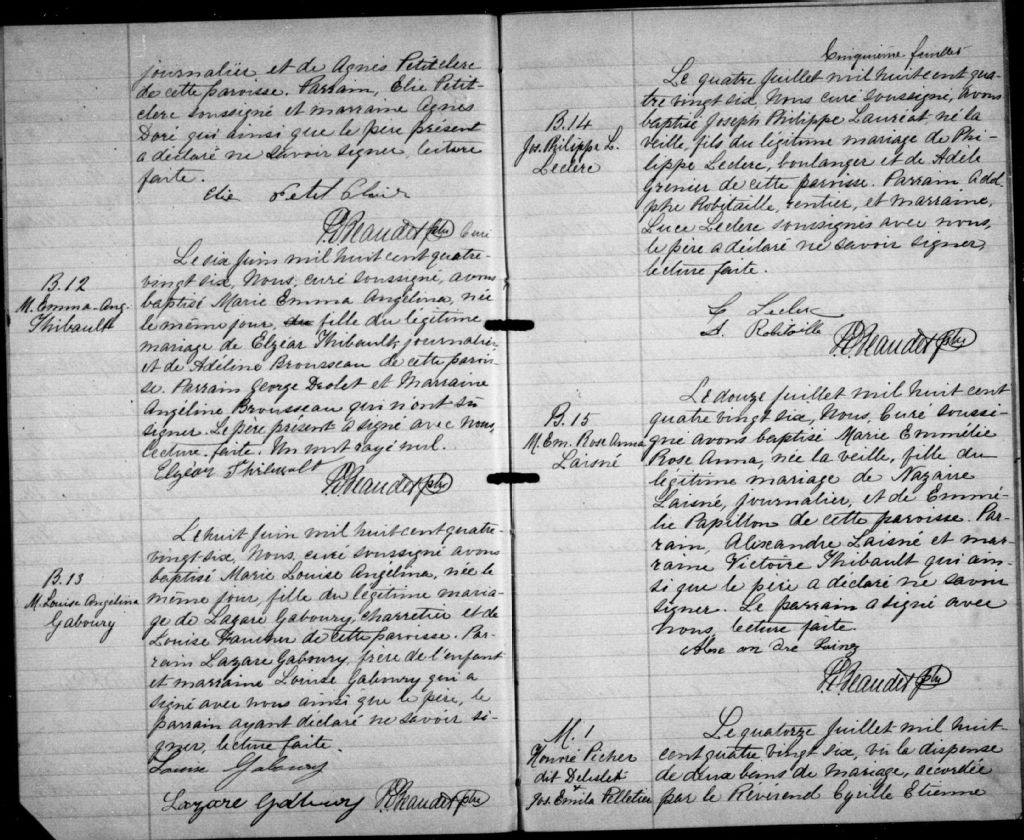 journalier et de Agnès Petitclerc
de cette paroisse. Parrain, Elie Petit-
clerc soussigné et marraine Agnès
Doré qui ainsi que le père présent
a déclaré ne savoir signer, lecture
faite.
Elie Petit Clair
Ptre Curé
B. 12
M. Emma-Ang.
Thibault
Le six juin mil huit cent quatre-
vingt six, Nous, curé soussigné, avons
baptisé Marie Emma Angélina, née
le même jour, fille du légitime
mariage de Elzéar Thibault, journalier,
et de Adéline Brousseau de cette parois-
se. Parrain George Drolet et Marraine
Angéline Brousseau qui n'ont su
signer. Le père présent a signé avec nous,
lecture faite. Un mot rayé nul.
Elzéar Thibault
Ptre
B. 13
M. Louise Angélina
Gaboury
Le huit juin mil huit cent quatre-
vingt six, Nous, curé soussigné avons
baptisé Marie Louise Angélina, née le
même jour, fille du légitime maria-
ge de Lazare Gaboury, charretier et de
Louise de cette paroisse. Par-
rain Lazare Gaboury, frère de l'enfant
et marraine Louise Gaboury qui a
signé avec nous ainsi que le père, le
parrain ayant déclaré ne savoir si-
gner, lecture faite.
Louise Gaboury
Lazare Gaboury Ptre
Cinquième feuillet
B. 14
Jos. Philippe L.
Leclerc
Le quatre juillet mil huit cent qua-
tre vingt six, Nous curé soussigné, avons
baptisé Joseph Philippe Lauréat né la
veille, fils du légitime mariage de Phi-
lippe Leclerc, boulanger et de Adèle
Grenier de cette paroisse. Parrain Adol-
phe Robitaille, rentier, et marraine,
Luce Leclerc soussignés avec nous,
le père a déclaré ne savoir signer,
lecture faite.
L Leclerc
A. Robitaille
Ptre
B. 15
M. Em. Rose Anna
Laisné
Le douze juillet mil huit cent
quatre vingt six, Nous, Curé soussi-
gné avons baptisé Marie Emmélie
Rose Anna, née la veille, fille du
légitime mariage de Nazaire
Laisné, journalier, et de Emmé-
lie Papillon de cette paroisse. Par-
rain, Alixandre Laisné et mar-
raine Victoire Thibault qui ain-
si que le père a déclaré ne savoir
signer. Le parrain a signé avec
nous, lecture faite.
Ptre
M. 1
Honoré Picher
dit Delisle
&
Jos. Emila Pelletier
Le quatorze juillet mil huit
cent quatre vingt six, vu la dispense
de deux bans de mariage, accordée
par le Révérend Cyrille Etienne